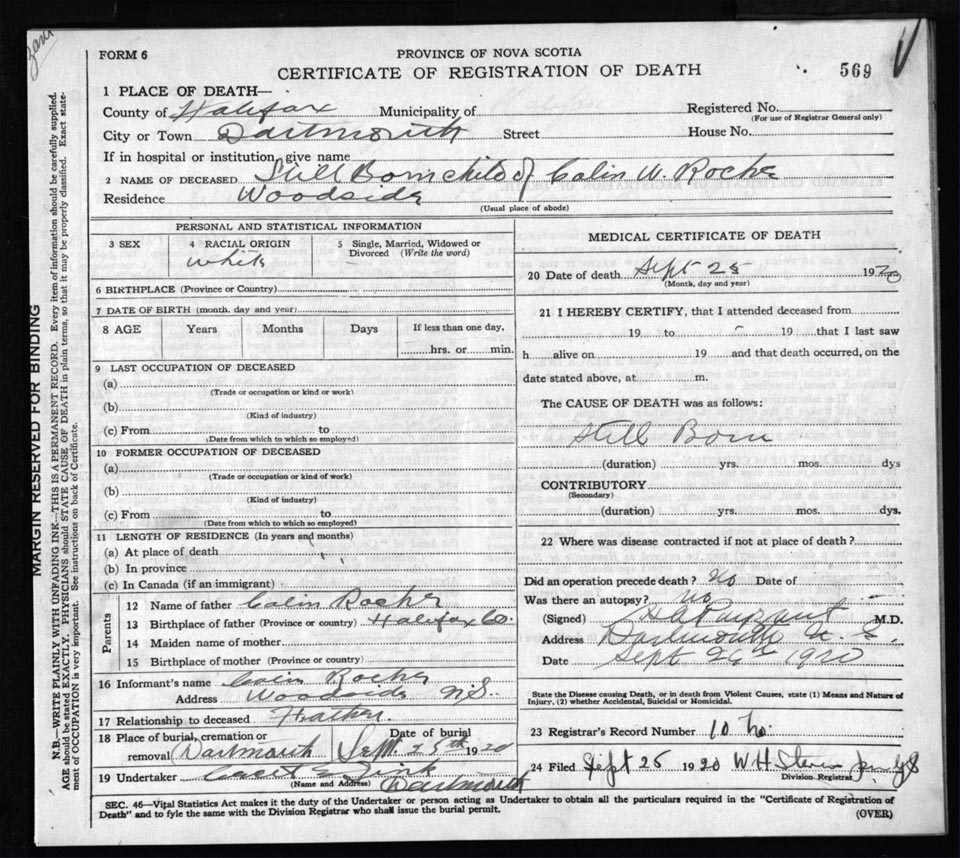 FORM 6
PROVINCE OF NOVA SCOTIA
CERTIFICATE OF REGISTRATION OF DEATH
569
1 PLACE OF DEATH—
County of Halifax Municipality of Registered No.
(For use of Registrar General only)
City or Town Dartmouth Street House No.
If in hospital or institution, give name
2 NAME OF DECEASED Still Born child of Colin W. Roche
Residence Woodside
(Usual place of abode)
PERSONAL AND STATISTICAL INFORMATION
3 SEX 4 RACIAL ORIGIN 5 Single, Married, Widowed or Divorced (Write the word)
white
6 BIRTHPLACE (Province or Country)
7 DATE OF BIRTH (month, day and year)
8 AGE Years Months Days If less than one day,
hrs. or min.
9 LAST OCCUPATION OF DECEASED
(a)
(Trade or occupation or kind or work)
(b)
(Kind of industry)
(c) From to
(Date from which to which so employed)
10 FORMER OCCUPATION OF DECEASED
(a)
(Trade or occupation or kind of work)
(b)
(Kind of industry)
(c) From to
(Date from which to which so employed)
11 LENGTH OF RESIDENCE (In years and months)
(a) At place of death
(b) In province
(c) In Canada (if an immigrant)
Parents
12 Name of father Colin Roche
13 Birthplace of father (Province or country) Halifax Co.
14 Maiden name of mother
15 Birthplace of mother (Province or country)
16 Informant's name Colin Roche
Address Woodside N.S.
17 Relationship to deceased Father.
18 Place of burial, cremation or removal Dartmouth Date of burial Sept 25th 1920
19 Undertaker
(Name and Address) Dartmouth
MEDICAL CERTIFICATE OF DEATH
20 Date of death Sept 25 1920
(Month, day and year)
21 I HEREBY CERTIFY, that I attended deceased from
19 to 19 that I last saw
h alive on 19 and that death occurred, on the
date stated above, at m.
The CAUSE OF DEATH was as follows:
Still Born
(duration) yrs. mos. dys
CONTRIBUTORY
(Secondary)
(duration) yrs. mos. dys.
22 Where was disease contracted if not at place of death?
Did an operation precede death? No Date of
Was there an autopsy? No
(Signed) Payzant M.D.
Address Dartmouth N.S.
Date Sept 26th 1920
State the Disease causing Death, or in death from Violent Causes, state (1) Means and Nature of Injury, (2) whether Accidental, Suicidal or Homicidal.
23 Registrar's Record Number
24 Filed Sept 25 1920 W H
Division Registrar
SEC. 46—Vital Statistics Act makes it the duty of the Undertaker or person acting as Undertaker to obtain all the particulars required in the "Certificate of Registration of
Death" and to fyle the same with the Division Registrar who shall issue the burial permit.
(OVER)
MARGIN RESERVED FOR BINDING
N.B.—WRITE PLAINLY WITH UNFADING INK—THIS IS A PERMANENT RECORD. Every item of information should be carefully supplied.
AGE should be stated EXACTLY. PHYSICIANS should STATE CAUSE OF DEATH in plain terms, so that it may be properly classified. Exact state-
ment of OCCUPATION is very important. See instructions on back of Certificate.